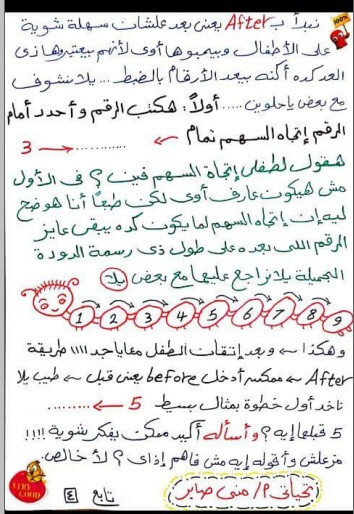 نبدأ بـ After يعنى بعد علشان سهلة شوية
على الأطفال وبيحبوها أوى لأنهم بيعتبروها زى
العد كده أكنه بيعد الأرقام بالضبط ... يلا نشوف
مع بعض يا حلوين ..... أولاً: هكتب الرقم وأحدد أمام
الرقم إتجاه السهم تمام ←
3 → ..........
هقول لطفلى إتجاه السهم فين؟ فى الأول
مش هيكون عارف أوى لكن طبعاً أنا هوضح
ليه إن إتجاه السهم لما يكون كده يبقى عايز
الرقم اللى بعده على طول زى رسمة الدودة
الجميلة يلا نراجع عليها مع بعض يلا
1 2 3 4 5 6 7 8 9
وهكذا ← وبعد إتقان الطفل معايا جدا!!!! طريقة
After ← ممكن أدخل before يعنى قبل ← طيب يلا
ناخد أول خطوة بمثال بسيط 5 ← .........
5 قبلها إيه؟ وأسأله أكيد ممكن يفكر شوية !!!!
مزعلش وأقوله إيه مش فاهم إذاى؟ لأ خالص.
VERY GOOD
تابع ٤
تحياتى م/ منى صابر